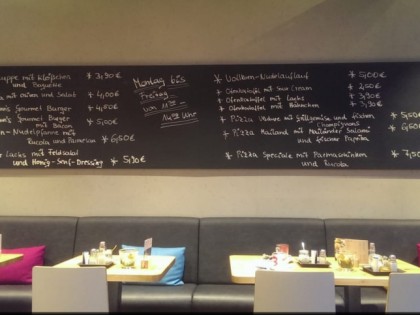 suppe mit Klößchen * 3,90€
und Baguette
mit und Salat * 4,00€
Gourmet Burger * 4,50€
Gourmet Burger * 5,00€
mit Bacon
Nudelpfanne mit * 6,50€
Rucola und Parmesan
Lachs mit Feldsalat
und Honig-Senf-Dressing * 5,90€
Montag bis
Freitag
von 11³⁰ -
14³⁰ Uhr
* Vollkorn-Nudelauflauf * 5,00€
* Ofenkartoffel mit Sour Cream * 2,00€
* Ofenkartoffel mit Lachs * 3,90€
* Ofenkartoffel mit Hähnchen * 3,90€
* Pizza mit und frischen * 5,50
Champignons
* Pizza Mailand mit Mailänder Salami * 6,50
und frischer Paprika
* Pizza Speciale mit Parmaschinken * 7,50
und Rucola